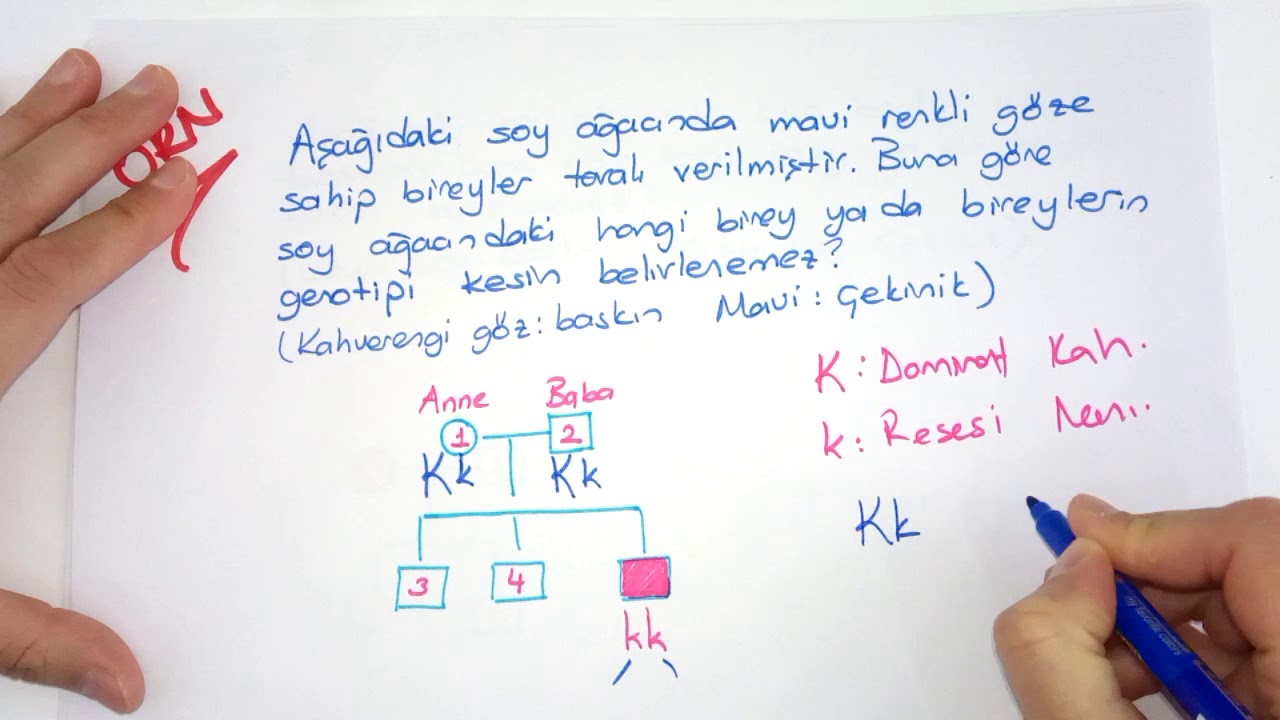 ÖRN
1
Aşağıdaki soy ağacında mavi renkli göze
sahip bireyler taralı verilmiştir. Buna göre
soy ağacındaki hangi birey ya da bireylerin
genotipi kesin belirlenemez?
(Kahverengi göz: baskın Mavi: Çekinik)
K: Dominant Kah.
k: Resesi
Anne Baba
1 2
Kk Kk
Kk
3 4
kk